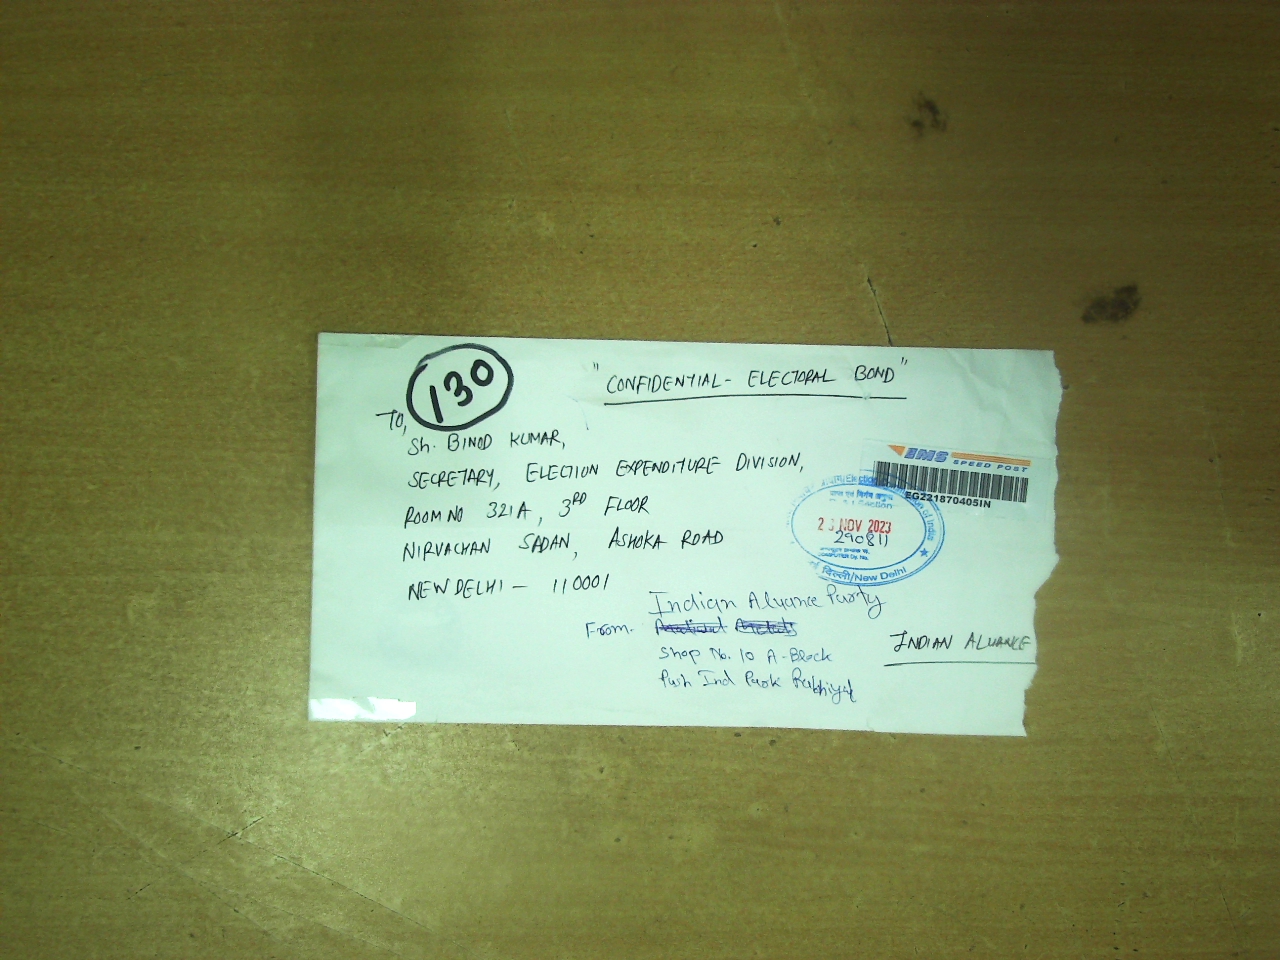 130
"CONFIDENTIAL- ELECTORAL BOND"
TO,
Sh. BINOD KUMAR,
SECRETARY, ELECTION EXPENDITURE DIVISION,
ROOM NO 321A, 3RD FLOOR
NIRVACHAN SADAN, ASHOKA ROAD
NEW DELHI - 110001
EMS
SPEED POST
EG221870405IN
Election of India
Section
23 NOV 2023
290811
COMPUTER Dy. No.
दिल्ली/New Delhi
Indian Aluance Party
From.
Shop No. 10 A-Block
Push Ind Park
INDIAN ALUANCE